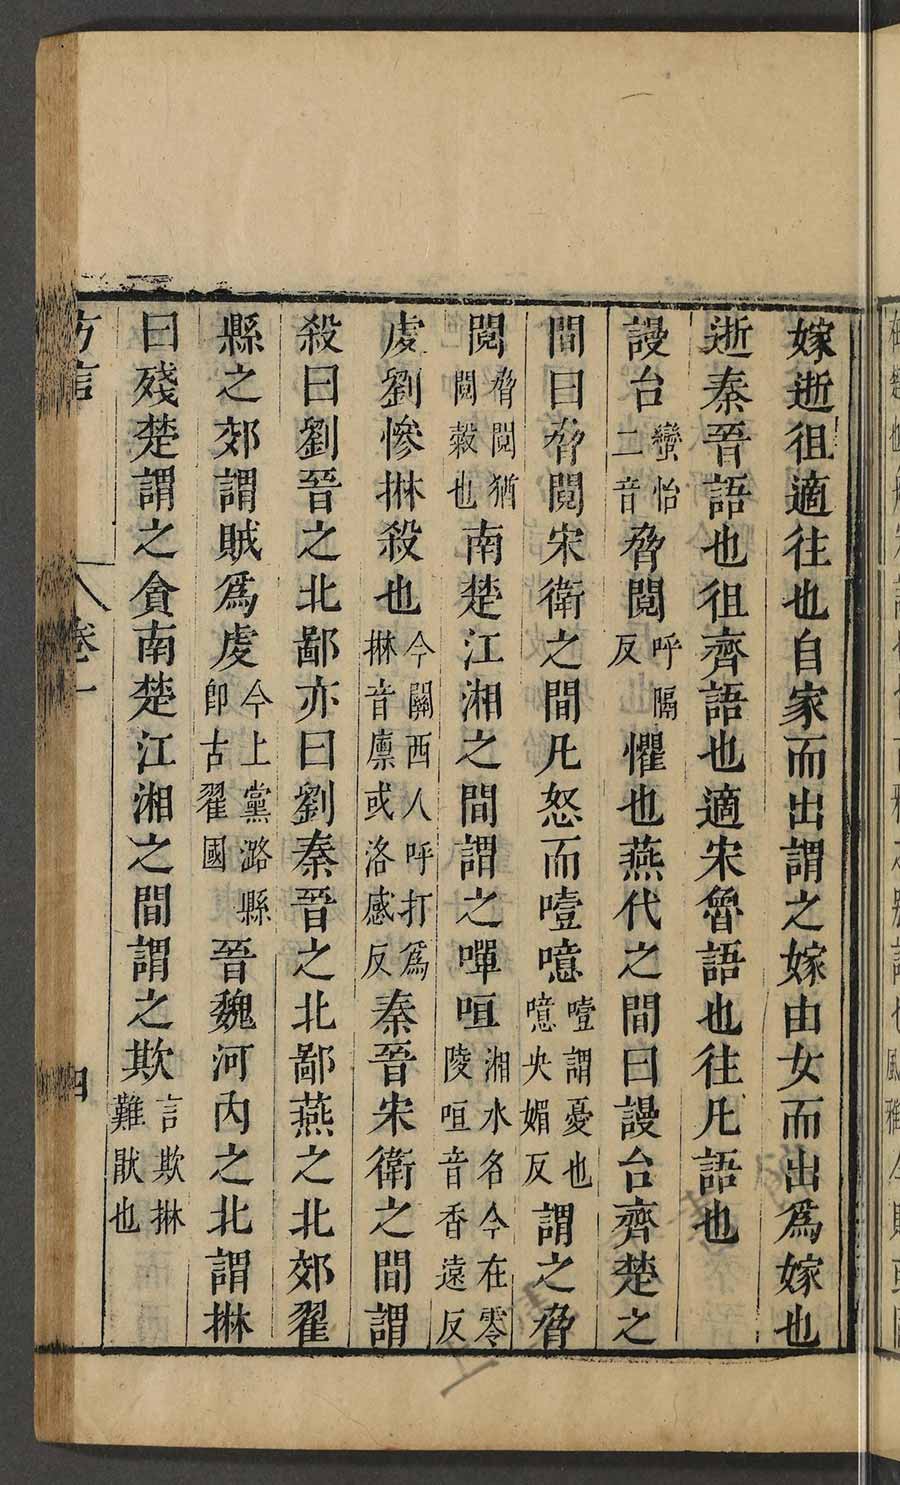 嫁逝徂適往也自家而出謂之嫁由女而出爲嫁也
逝秦晉語也徂齊語也適宋魯語也往凡語也
謾台蠻怡二音脅鬩呼隔反懼也燕代之間曰謾台齊楚之
間曰脅鬩宋衛之間凡怒而噎噫噎謂憂也噫央媚反謂之脅
鬩脅鬩猶鬩穀也南楚江湘之間謂之嘽咺湘水名今在零陵咺音香遠反
虔劉慘惏殺也今關西人呼打爲惏音廩或洛感反秦晉宋衛之間謂
殺曰劉晉之北鄙亦曰劉秦晉之北鄙燕之北郊翟
縣之郊謂賊爲虔今上黨潞縣卽古翟國晉魏河內之北謂惏
曰殘楚謂之貪南楚江湘之間謂之欺言欺惏難猒也
方言
卷一
四